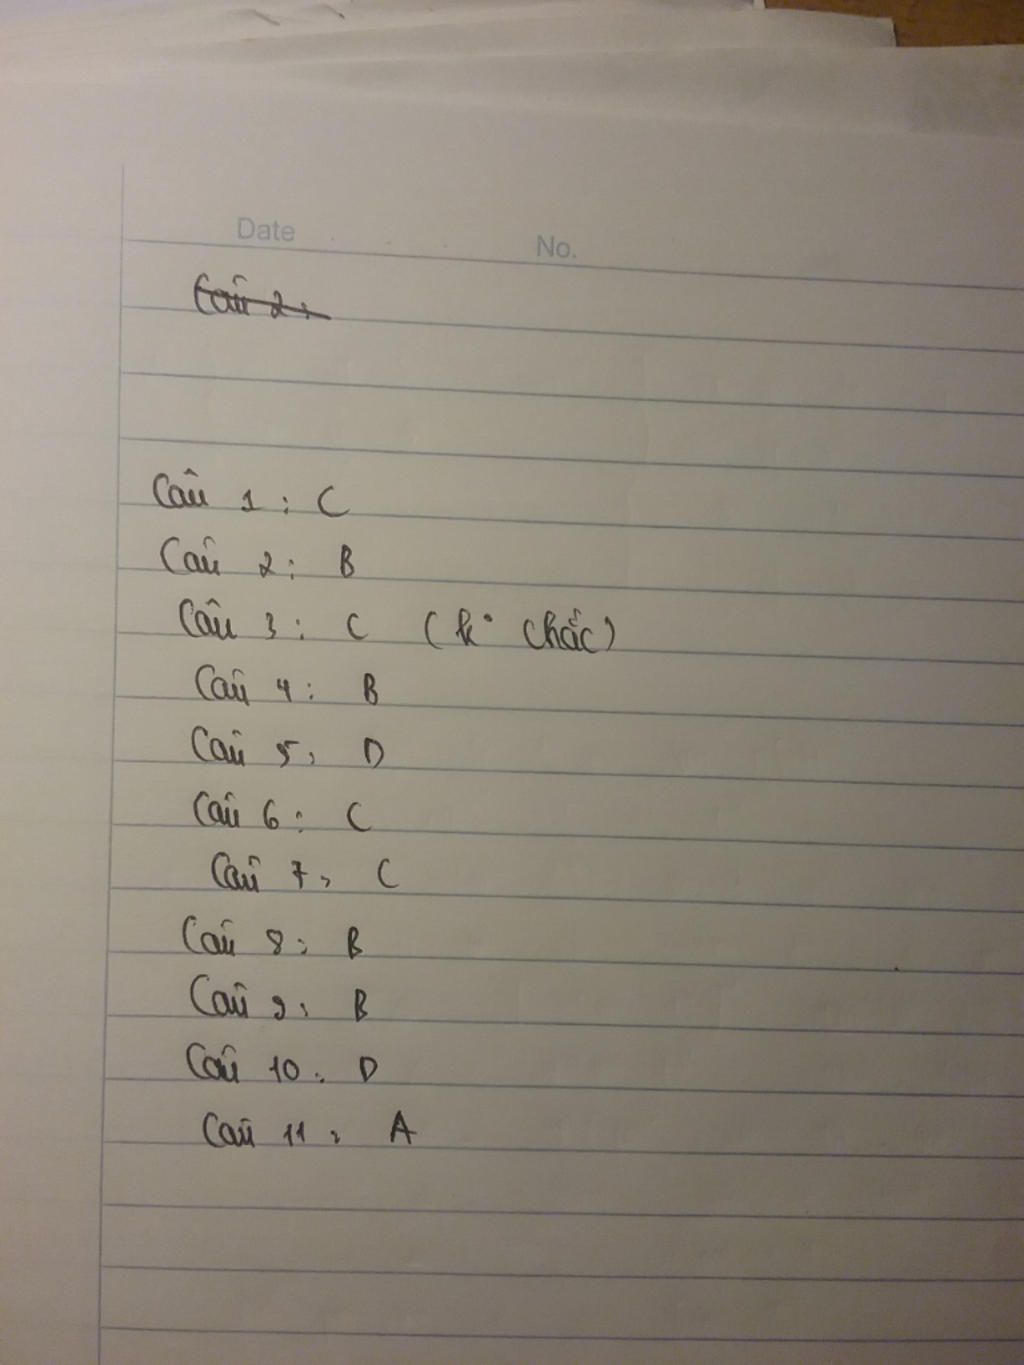 Date No.
Câu 2:
Câu 1: C
Câu 2: B
Câu 3: C (k° chắc)
Câu 4: B
Câu 5: D
Câu 6: C
Câu 7: C
Câu 8: B
Câu 9: B
Câu 10: D
Câu 11: A